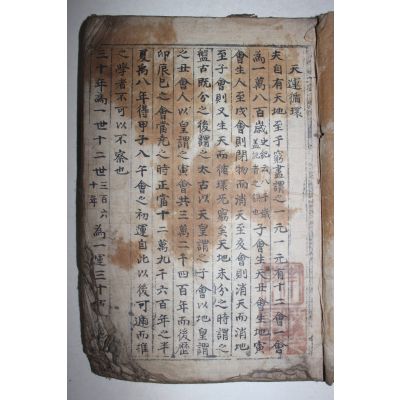 天運循環
夫自有天地至于窮盡謂之一元一元有十二會一會
為一萬八百歲史紀云子會生天丑會生地寅
會生人至戌會則閉物而消天至亥會則消天而消地
至子會則又生天而循環无窮矣天地未分之時謂之
盤古旣分之後謂之太古以天皇謂之子會以地皇謂
之丑會人以皇謂之寅會共三萬二千四百年而後歷
卯辰巳之會當堯之時正當十二萬九千六百年之半
夏禹八年得甲子入午會之初運自此以後可遡而推
之學者不可以不察也
三十年為一世十二世三百六十年為一運三十